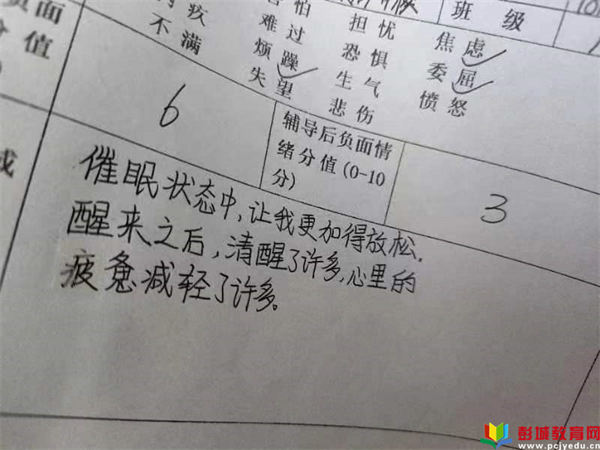 班级
不满
难过
担忧
焦虑
烦躁
恐惧
委屈
失望
生气
愤怒
悲伤
负面
分值
6
辅导后负面情
绪分值(0-10
分)
3
催眠状态中,让我更加得放松.
醒来之后,清醒了许多,心里的
疲惫减轻了许多。
彭城教育网
www.pcjyedu.cn